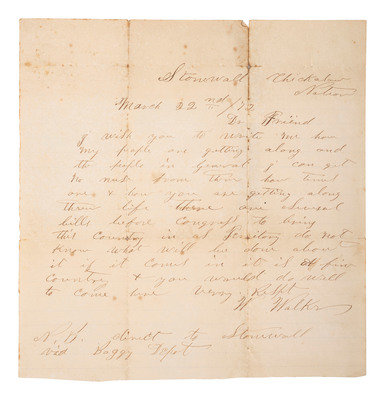 Stonewall Chickasaw
Nation
March 22nd /72
Dr Friend
I wish you to write me how
my people are getting along and
the people in General I can get
no news from them how times
are & how you are getting along
threw life there are Several
bills before Congress to bring
this Country in as Teritory do not
know what will be done about
it if it comes in it is a fine
Country & you would do well
to come here very Respt
W Walker
N.B. direct to Stonewall
via Boggy Depot